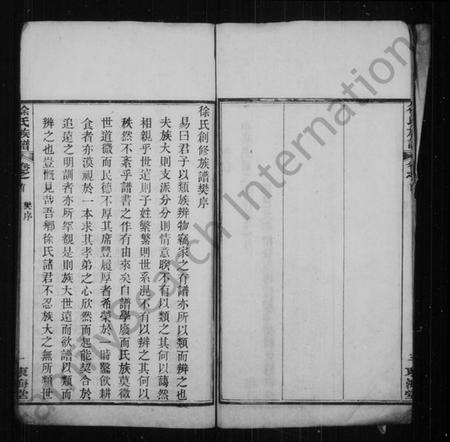 徐氏創修族譜樊序
易曰君子以類族辨物竊家之有譜亦所以類而辨之也
夫族大則支派分分則情意睽不有以類之其何以藹然
相親乎世遠則子姓繁繁則世系混不有以辨之其何以
秩然不紊乎譜書之作有由來矣自譜學廢而氏族莫徵
世道微而民德不厚其席豐履厚者希榮於時鑿飲耕
食者亦漠視於一本求其孝弟之心欣然而起能契合於
追遠之明訓者亦所罕覯是則族大世遠而欲譜以類而
辨之也豈慨見哉吾鄉徐氏諸君不忍族大之無所類世
徐氏族譜
卷之首
樊序
一
東海堂
Family Search International